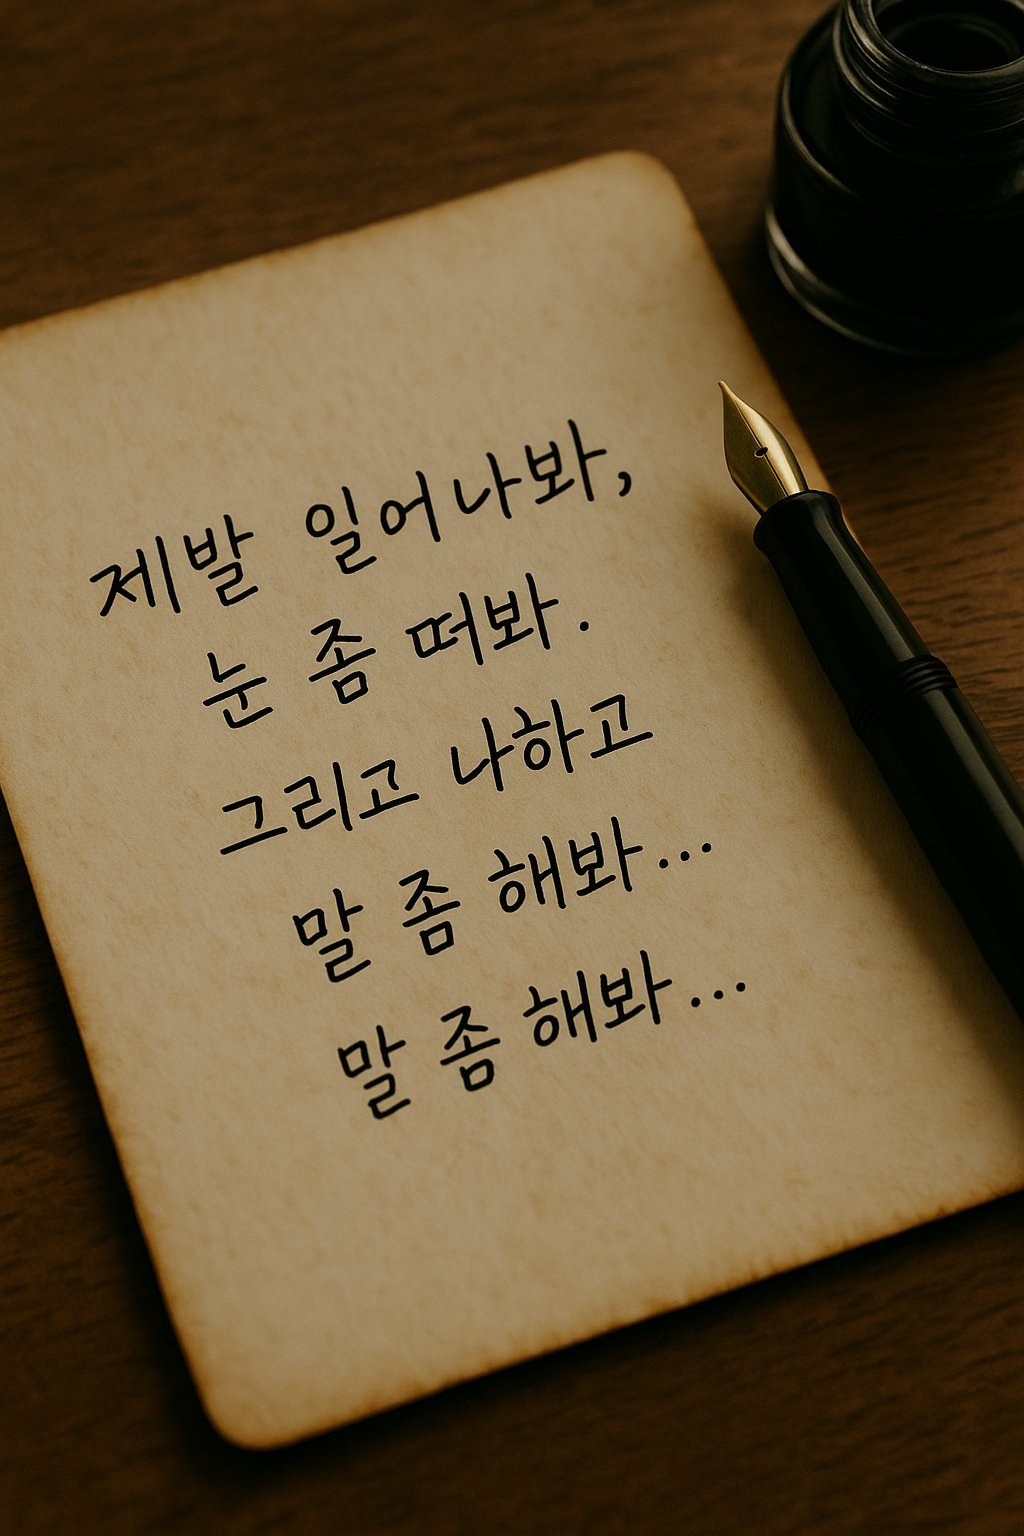 제발 일어나봐,
눈 좀 떠봐.
그리고 나하고
말 좀 해봐...
말 좀 해봐...